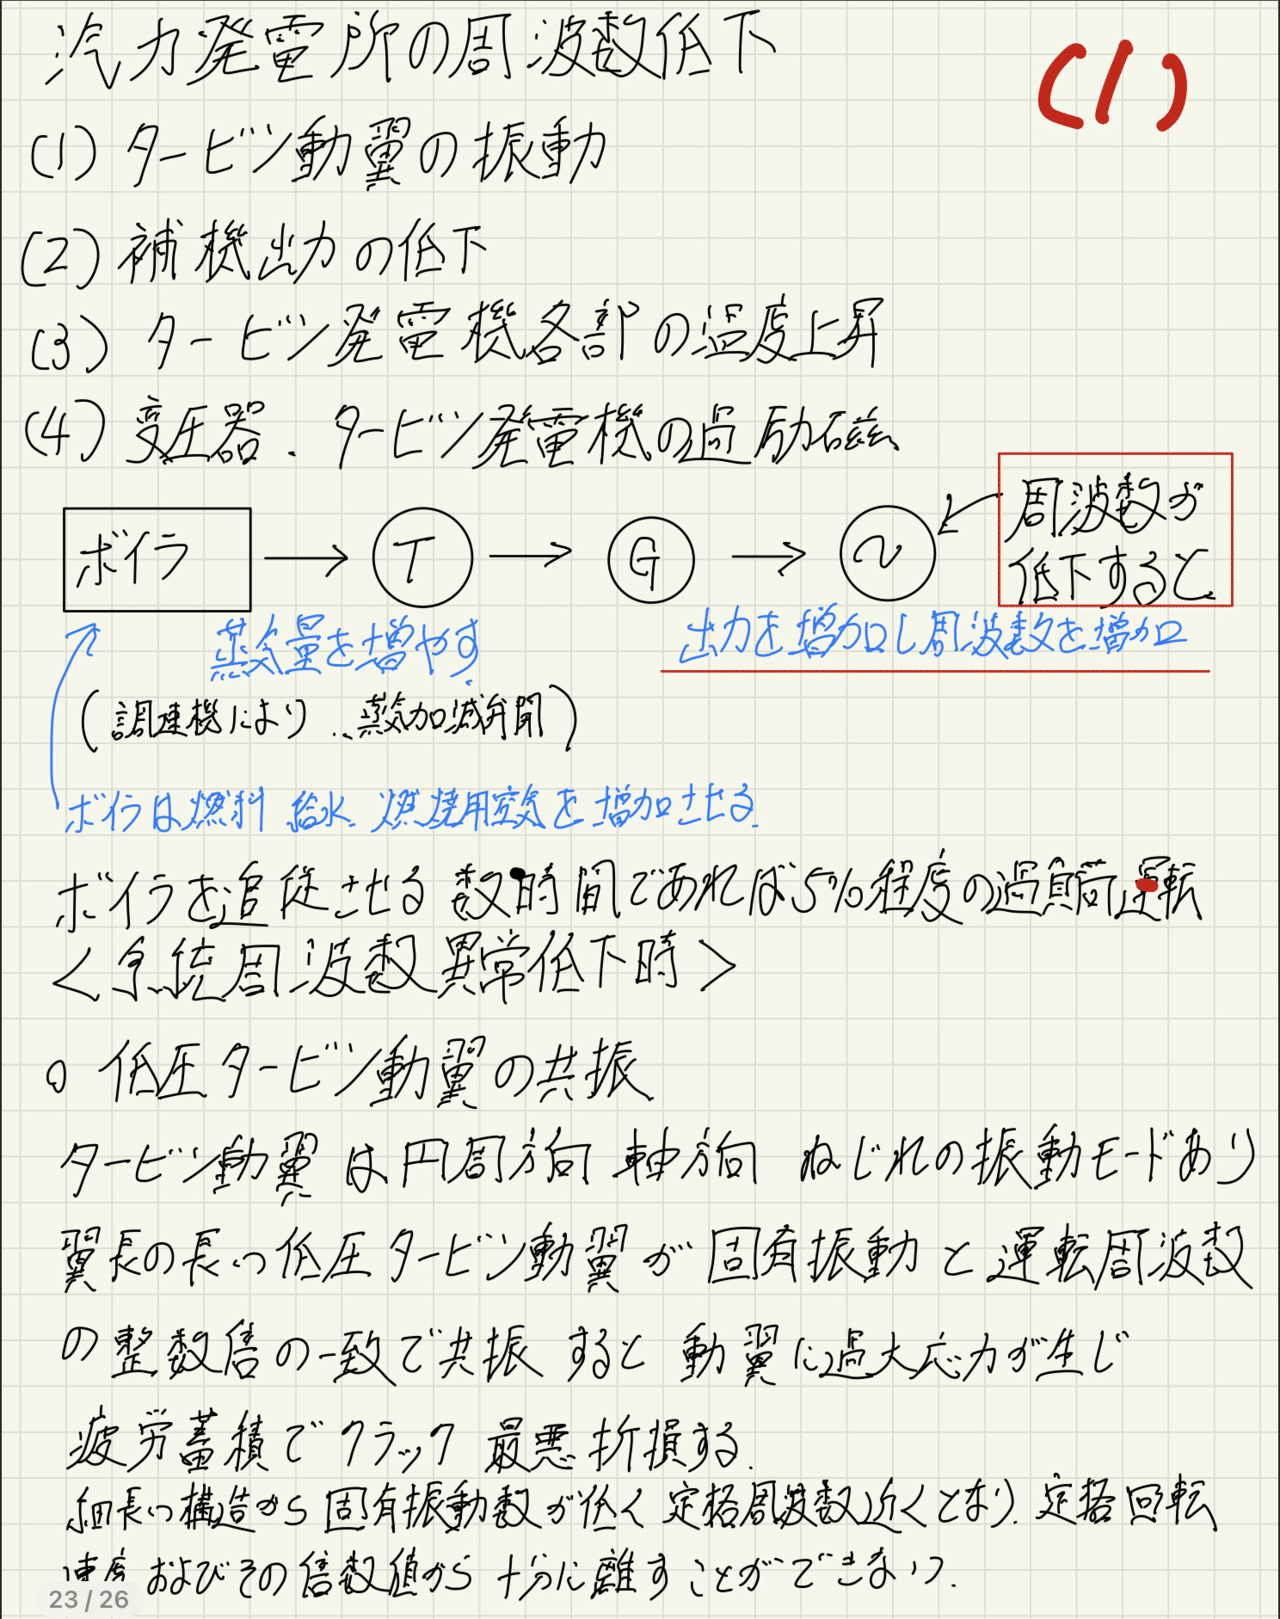 汽力発電所の周波数低下
(1)
(1) タービン動翼の振動
(2) 補機出力の低下
(3) タービン発電機各部の温度上昇
(4) 変圧器、タービン発電機の過励磁
周波数が
低下すると
ボイラ → T → G → ~
蒸気量を増やす
出力を増加し周波数を増加
(調速機により、蒸気加減弁開)
ボイラは燃料 給水 燃焼用空気を増加させる
ボイラを追従させる 数時間であれば5%程度の過負荷運転
<系統周波数異常低下時>
○ 低圧タービン動翼の共振
タービン動翼は円周方向 軸方向 ねじれの振動モードあり
翼長の長い低圧タービン動翼が固有振動と運転周波数
の整数倍の一致で共振すると動翼に過大応力が生じ
疲労蓄積でクラック 最悪折損する.
細長い構造から固有振動数が低く定格周波数近くとなり. 定格回転
速度およびその倍数値から十分に離すことができない.
23 / 26